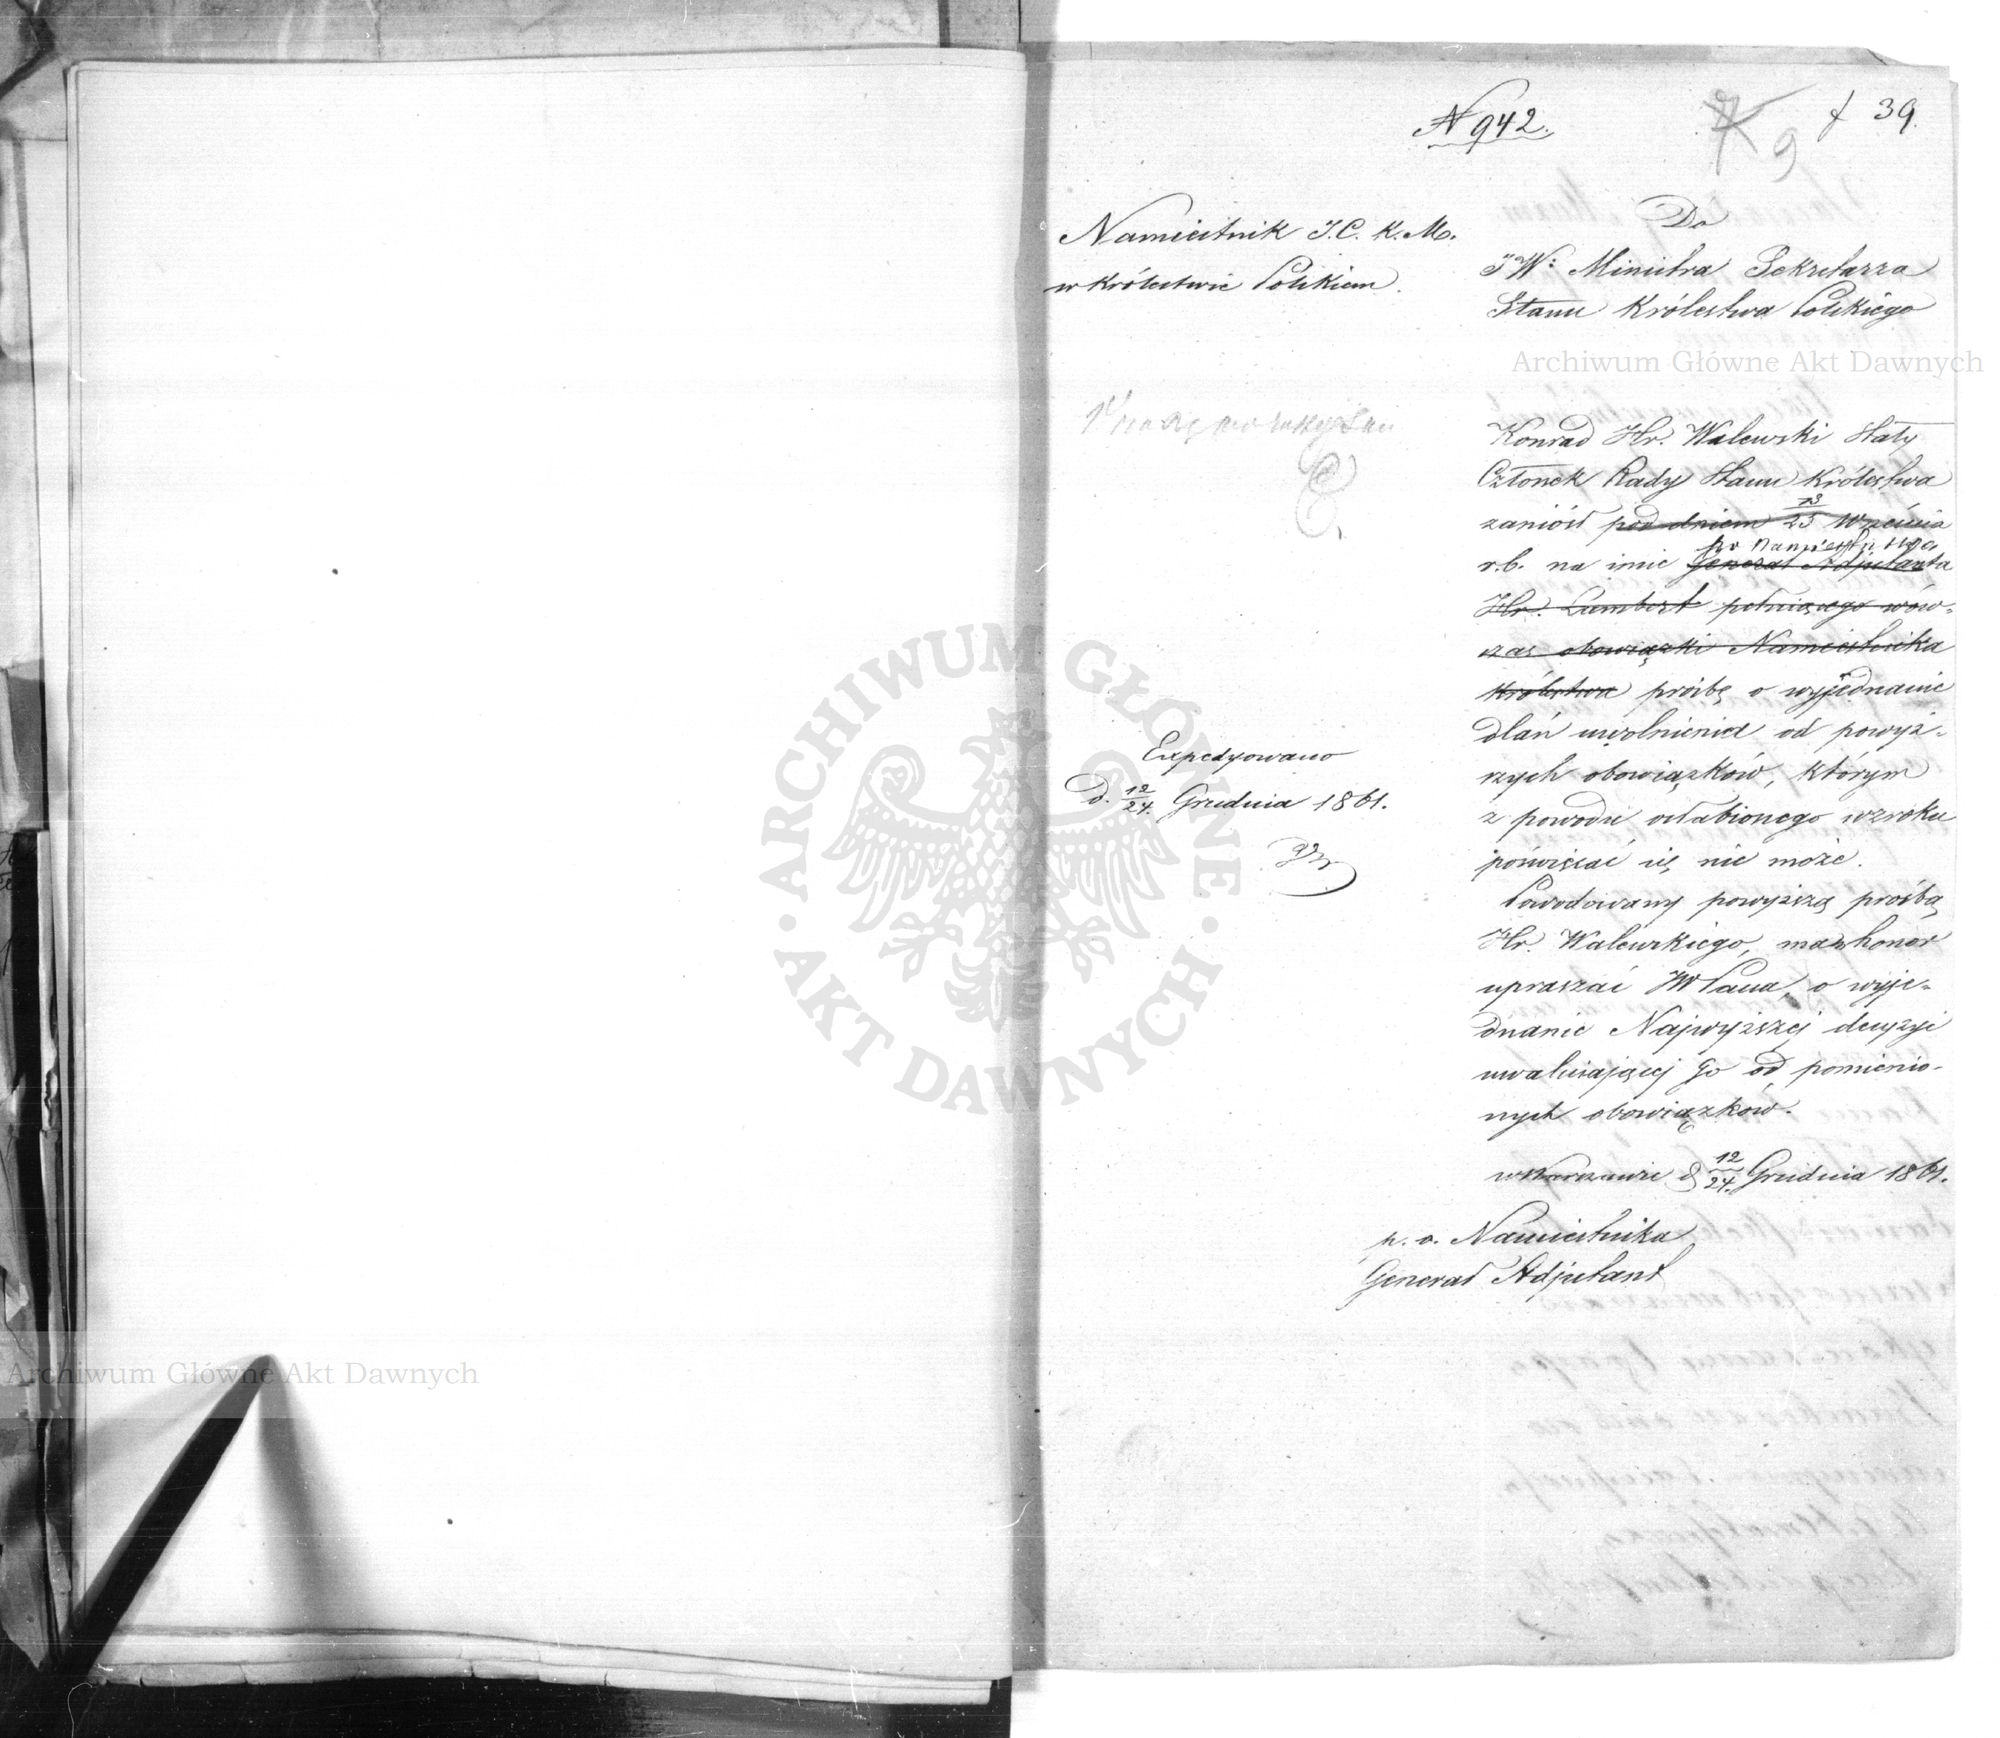 N 942.
f 39.
9
Namiestnik J.C.K.M.
w Królestwie Polskiem.
Do
JW: Ministra Sekretarza
Stanu Królestwa Polskiego
Archiwum Główne Akt Dawnych
Konrad Hr. Walewski Stały
Członek Rady Stanu Królestwa
zaniósł pod dniem 13/25 Września
r.b. na imie Generał Adjutanta
Hr. Lambert pełniącego wów-
czas obowiązki Namiestnika
Królestwa prośbę o wyjednanie
dlań uwolnienia od powyż-
szych obowiązków, którym
z powodu osłabionego wzroku
poświęcać się nie może.
Powodowany powyższą prośbą
Hr. Walewskiego, mam honor
upraszać JW Pana, o wyje-
dnanie Najwyższéj decyzyi
uwalniającéj go od pomienio-
nych obowiązków.
w Warszawie d 12/24. Grudnia 1861.
p. o. Namiestnika
Generał Adjutant
Expedyowano
d. 12/24. Grudnia 1861.
ARCHIWUM GŁÓWNE · AKT DAWNYCH ·
Archiwum Główne Akt Dawnych